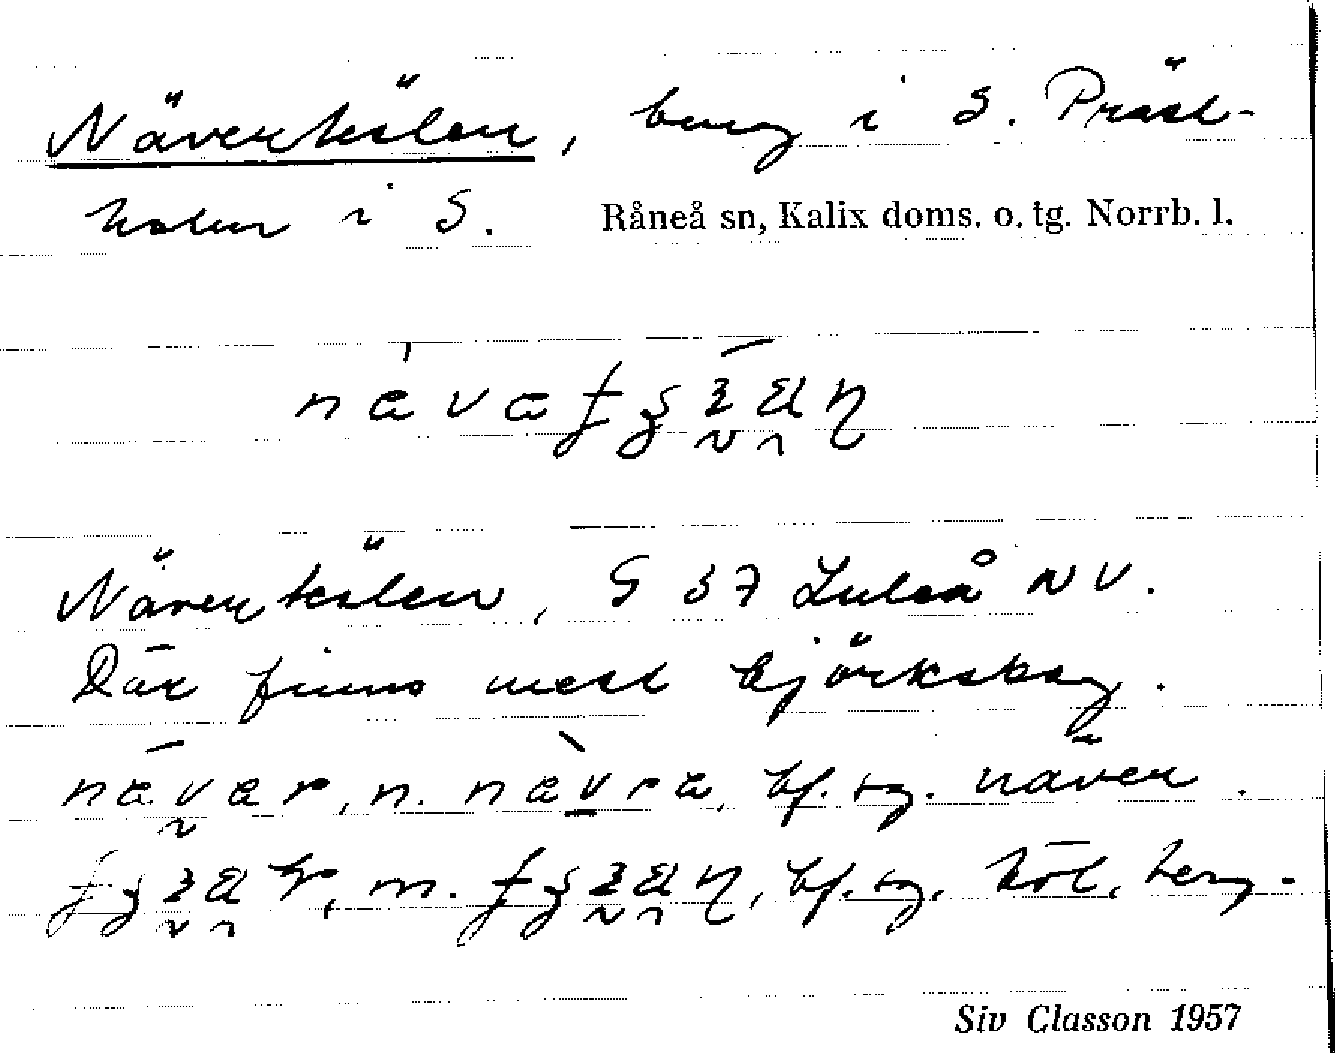 Näverkölen, berg i S. Präst-
holm i S. Råneå sn, Kalix doms. o. tg. Norrb. l.
Näverkölen, S 37 Luleå NV.
Där finns mest björkskog.
n. bf. sg. näver.
m. bf. sg. köl, berg.
Siv Classon 1957